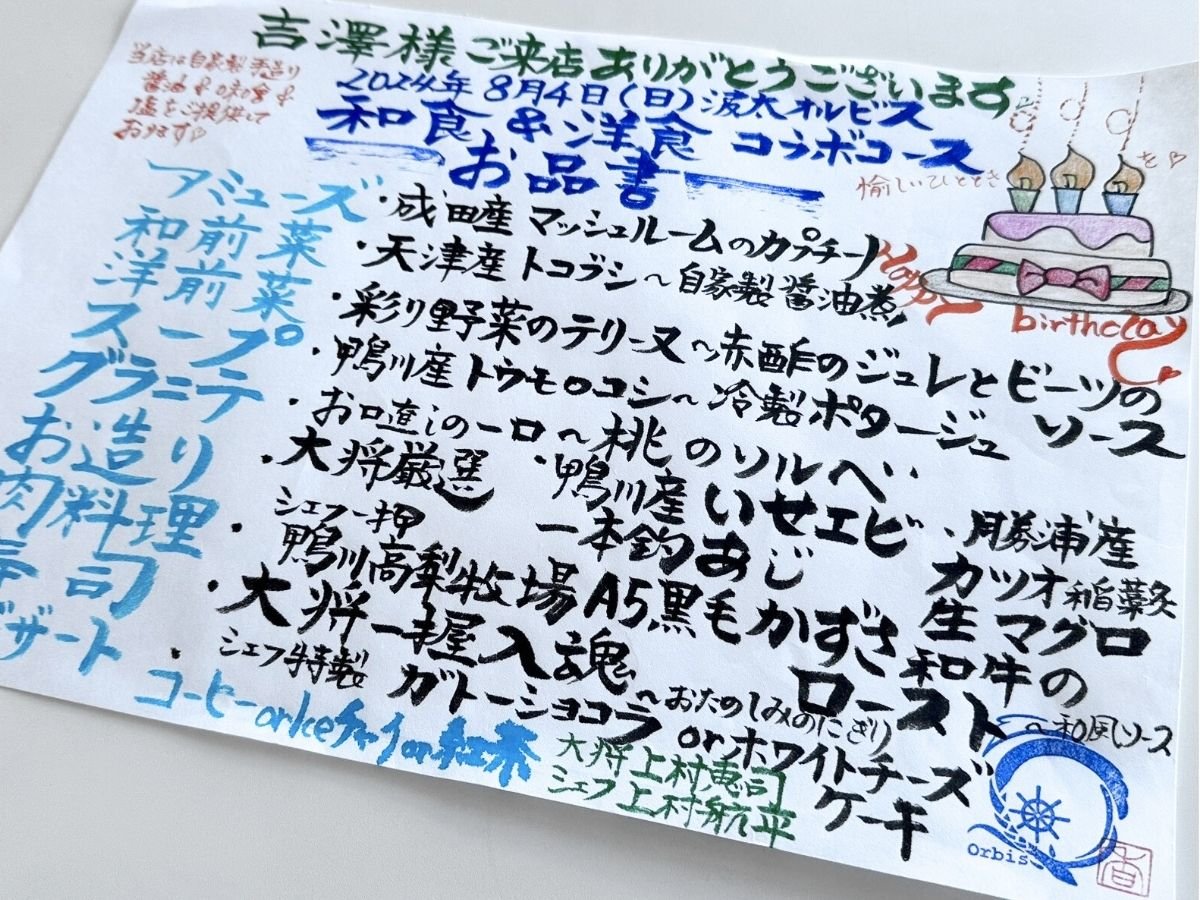 吉澤様ご来店ありがとうございます
2024年8月4日(日)波太オルビス
和食&洋食 コラボコース
お品書
当店は自家製手造り
醤油&味噌&
塩をご提供して
おります♡
愉しいひとときを♡
Happy
birthday
アミューズ ・成田産マッシュルームのカプチーノ
和前菜 ・天津産トコブシ〜自家製醤油煮
洋前菜 ・彩り野菜のテリーヌ〜赤酢のジュレとビーツのソース
スープ ・鴨川産トウモロコシ〜冷製ポタージュ
グラニテ ・お口直しの一口〜桃のソルベ
お造り ・大将厳選 ・鴨川産いせエビ ・勝浦産カツオ稲藁炙
一本釣あじ 生マグロ
肉料理 ・シェフ一押 鴨川高梨牧場A5黒毛かずさ和牛のロースト〜和風ソース
寿司 ・大将一握入魂〜おたのしみのにぎり
デザート ・シェフ特製 ガトーショコラorホワイトチーズケーキ
コーヒーorIceチャイor紅茶
大将 上村恵司
シェフ 上村航平
Orbis